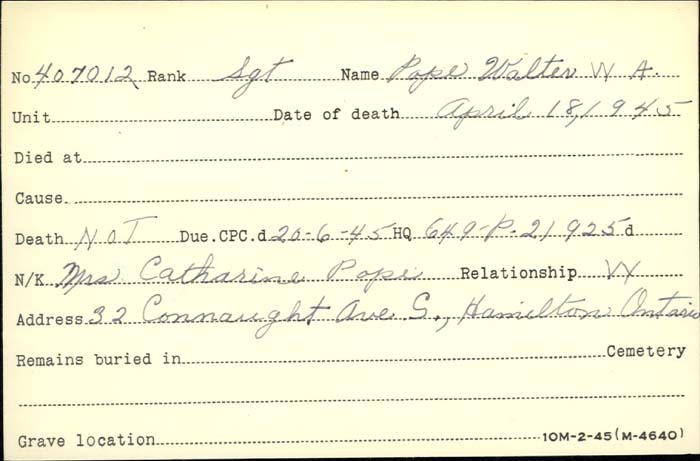 No 407012 Rank Sgt Name Pope Walter W A.
Unit Date of death April 18, 1945
Died at
Cause.
Death NOT Due.CPC.d 20-6-45 HQ 649-P-21925 d
N/K Mrs Catharine Pope Relationship W
Address 32 Connaught Ave S., Hamilton Ontario
Remains buried in Cemetery
Grave location 10M-2-45(M-4640)